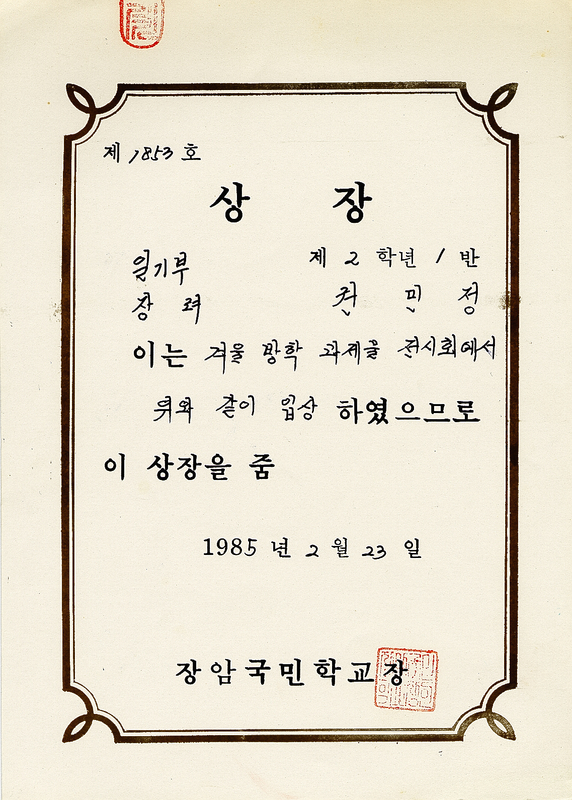 제 1853 호
상 장
일기부 제 2 학년 1 반
장 려 권 민 정
이는 겨울 방학 과제물 전시회에서
위와 같이 입상 하였으므로
이 상장을 줌
1985 년 2 월 23 일
장암국민학교장